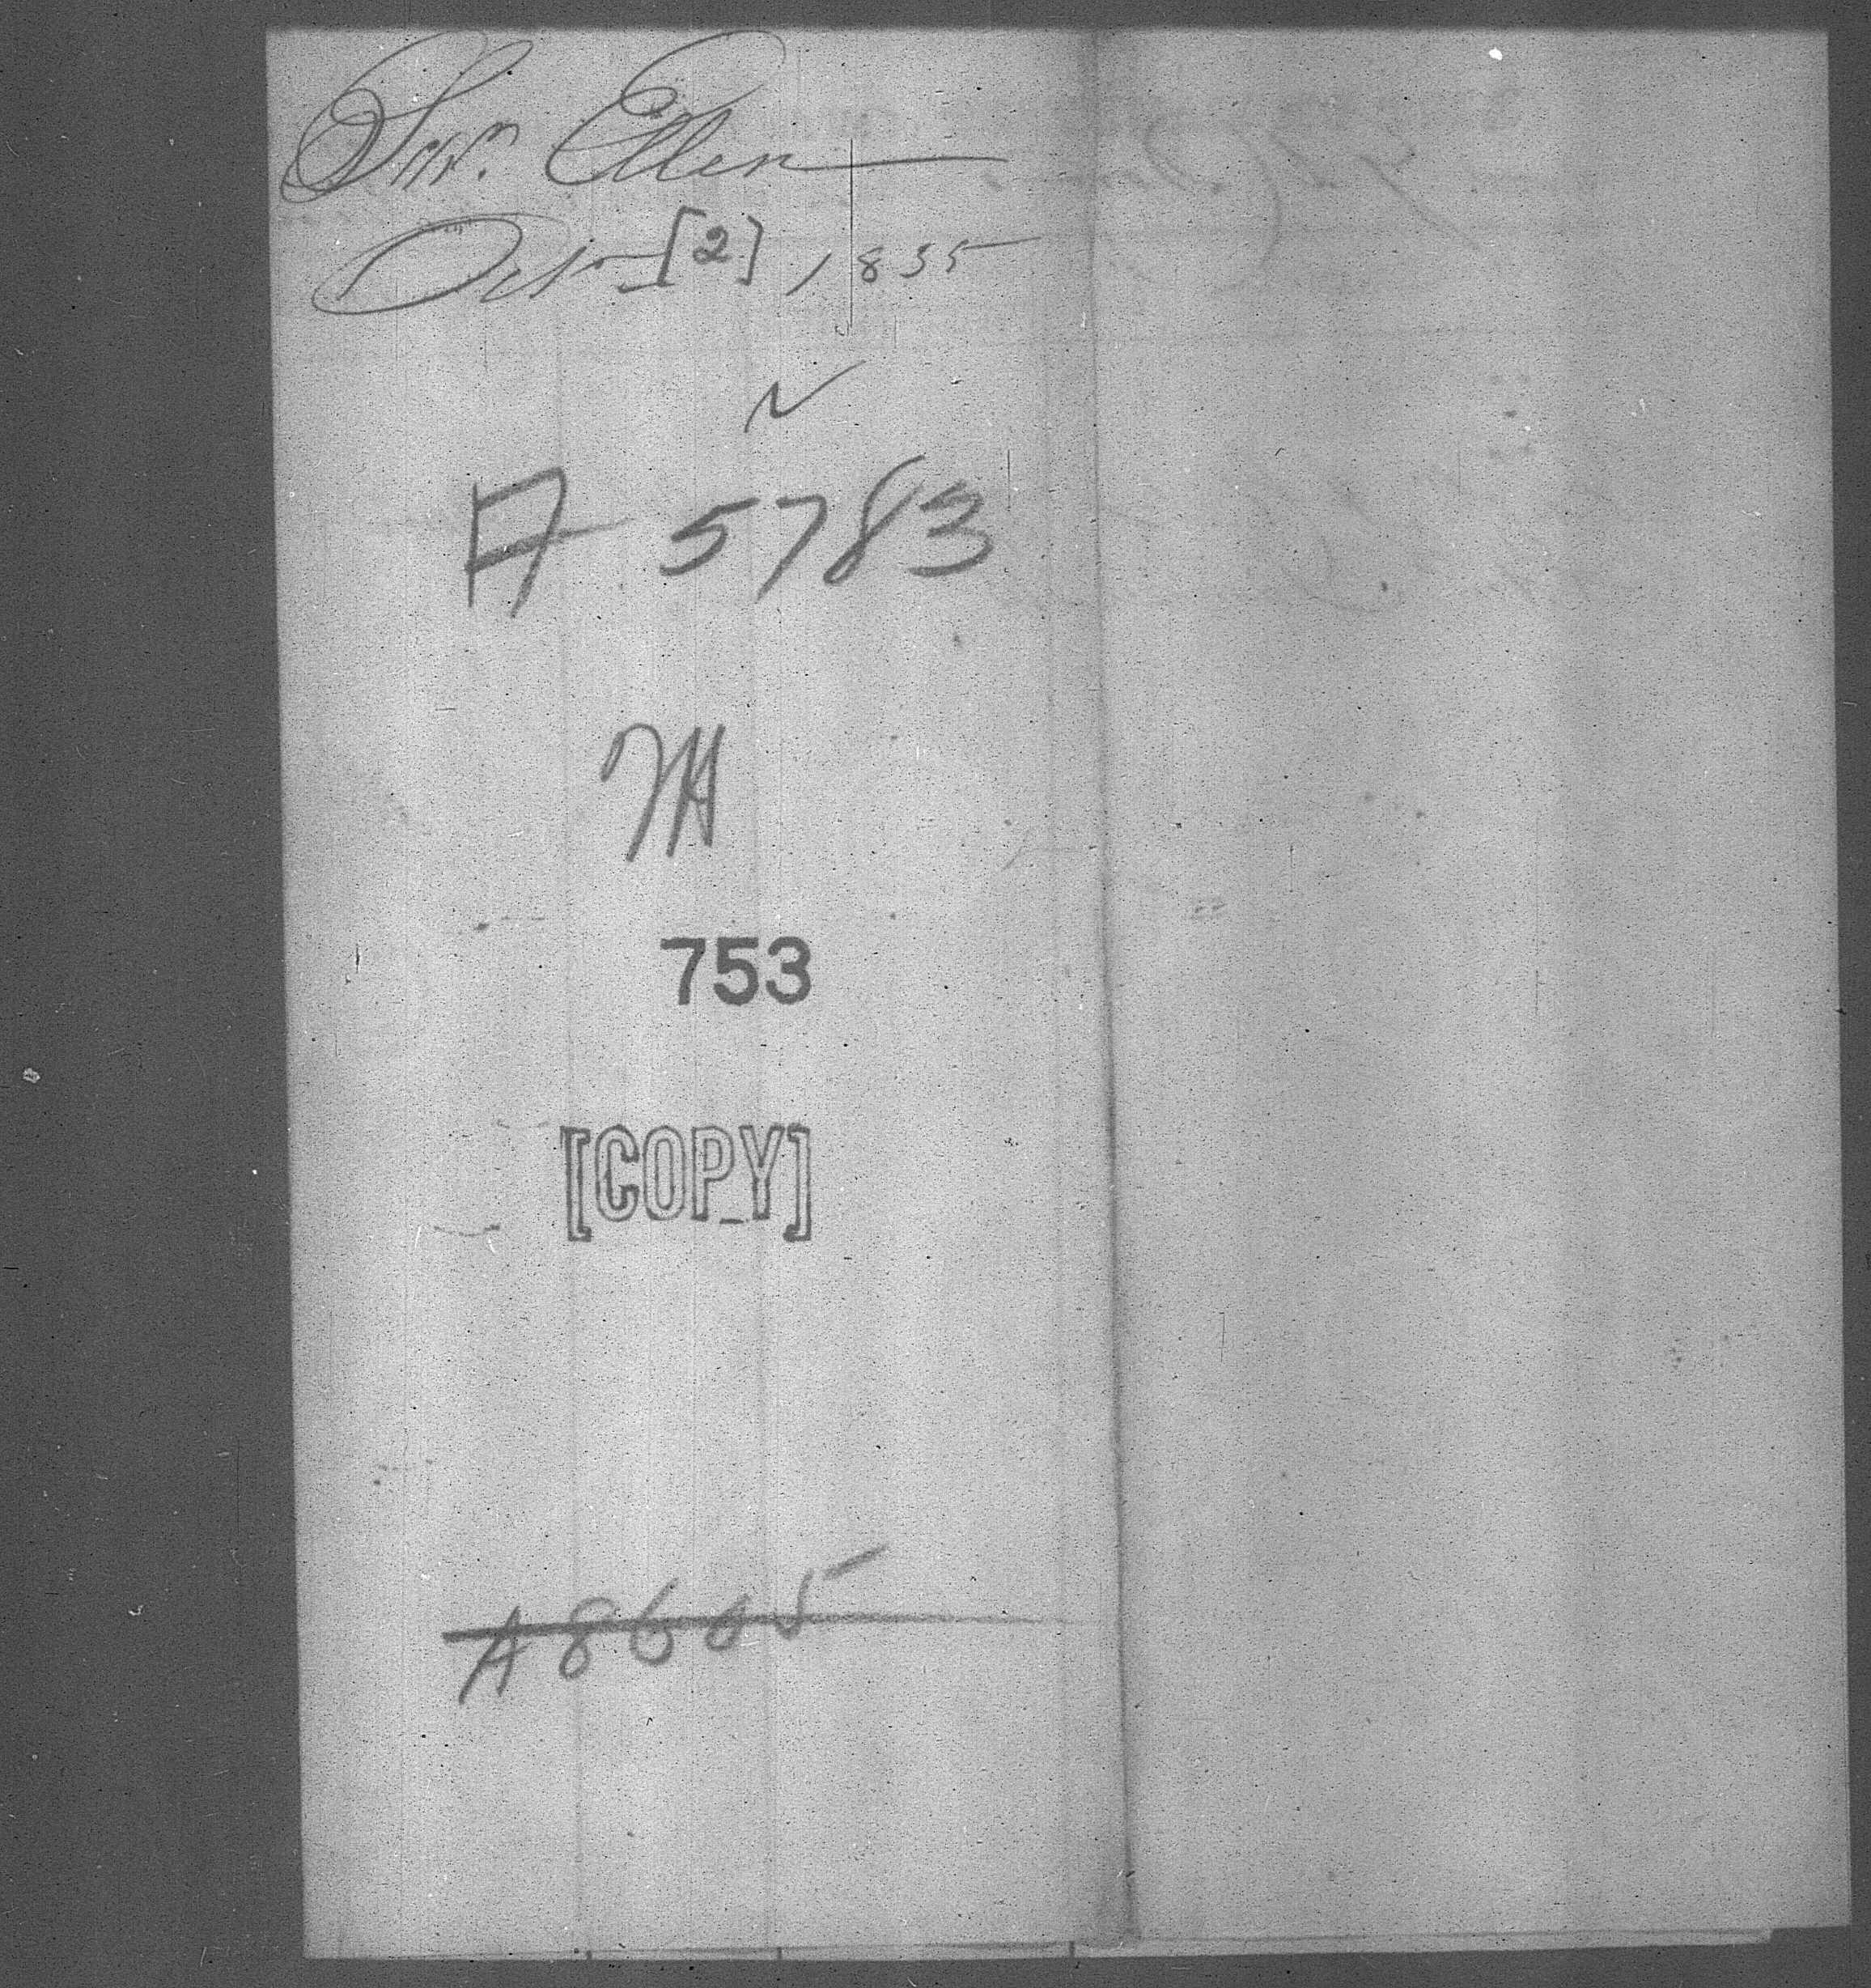 Sm. Ellen
Oct [2] 1835
A 5783
753
[COPY]
A 8665